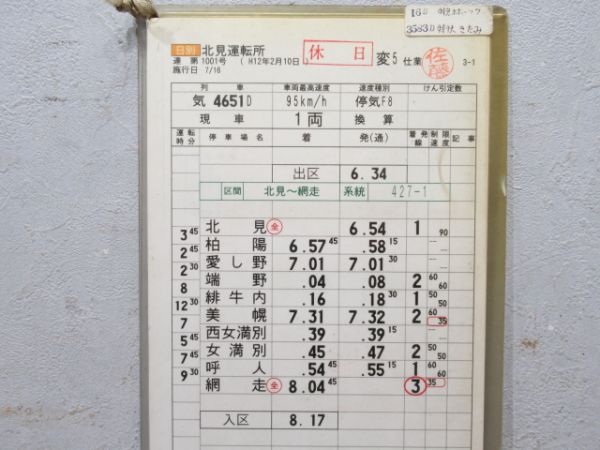 16日
3583D 特快きたみ
日別 北見運転所 休日 変5 仕業 佐藤 3-1
達 第1001号 ( H12年2月10日 )
施行日 7/16
列車 車両最高速度 速度種別 けん引定数
気 4651D 95km/h 停気F8
現車 1両 換算
運転時分 停車場名 着 発(通) 着発線 制限速度 記事
出区 6.34
区間 北見〜網走 系統 427-1
北見 全 6.54 1 90
3 45
柏陽 6.57 45 .58 15
2 45
愛し野 7.01 7.01 30
2 30
端野 .04 .08 2 60 60
8
緋牛内 .16 .18 30 1 50 50
12 30
美幌 7.31 7.32 2 60 35
7
西女満別 .39 .39 15
5 45
女満別 .45 .47 2 50 50
7 45
呼人 .54 45 .55 15 1 60 60
9 30
網走 全 8.04 45 3 35
入区 8.17